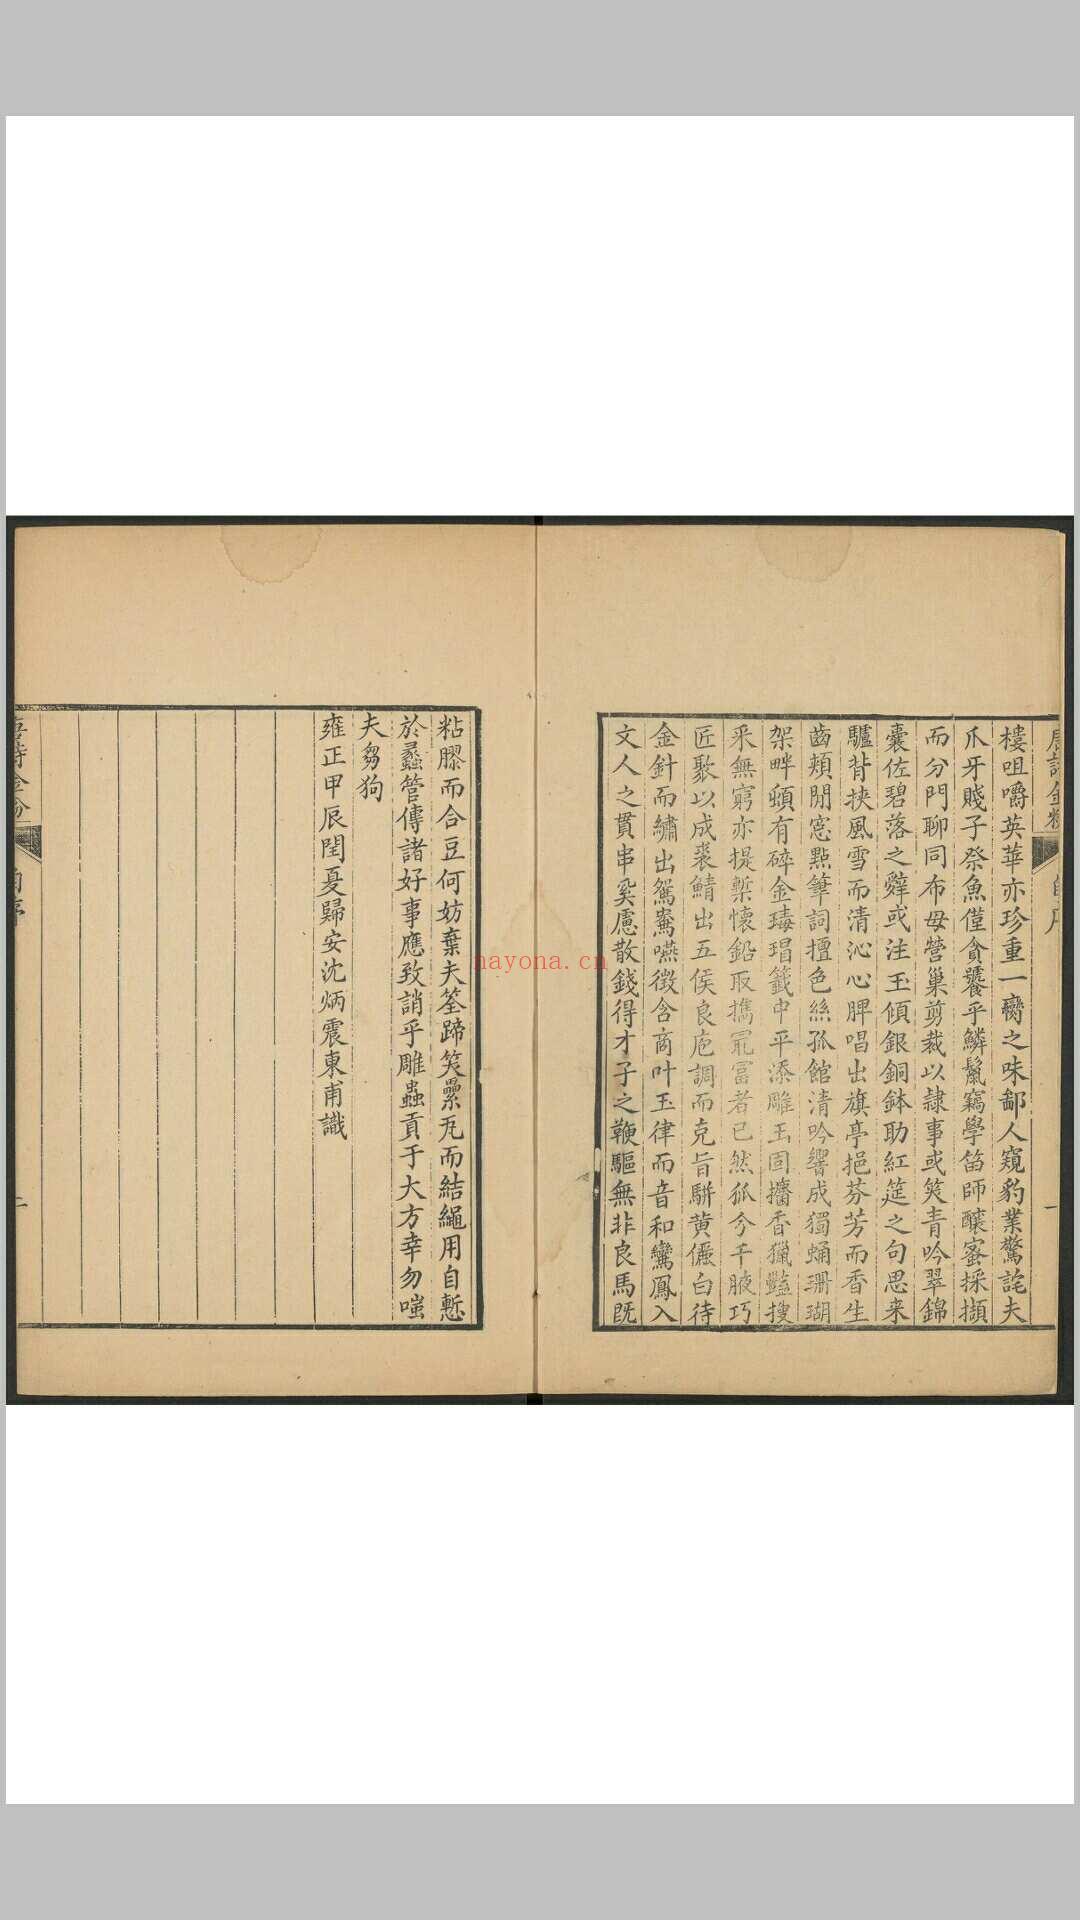 唐詩金粉
自序
一
樓咀嚼英華亦珍重一臠之味鄙人窺豹業驚詫夫
爪牙賤子祭魚僅貪饕乎鱗鬣竊學笛師釀蜜採擷
而分門聊同布母營巢剪裁以隷事或筊青吟翠錦
囊佐碧落之辭或注玉傾銀銅鉢助紅筵之句思来
驢背挾風雪而清沁心脾唱出旗亭挹芬芳而香生
齒頰閒窓點筆詞擅色絲孤館清吟響成獨蛹珊瑚
架畔頓有碎金瑇瑁籤中平添雕玉固攟香獵豔搜
采無窮亦提槧懷鉛取攜冣富者已然狐兮千腋巧
匠聚以成裘鯖出五侯良庖調而克旨駢黄儷白待
金針而繡出鴛鴦嚥徵含商叶玉律而音和鸞鳳入
文人之貫串奚慮散錢得才子之鞭驅無非良馬旣
粘膠而合豆何妨棄夫筌蹄筊纍瓦而結繩用自慙
於蠡管傳諸好事應致誚乎雕蟲貢于大方幸勿嗤
夫芻狗
雍正甲辰閏夏歸安沈炳震東甫識
唐詩金粉
自序
二
nayona.cn